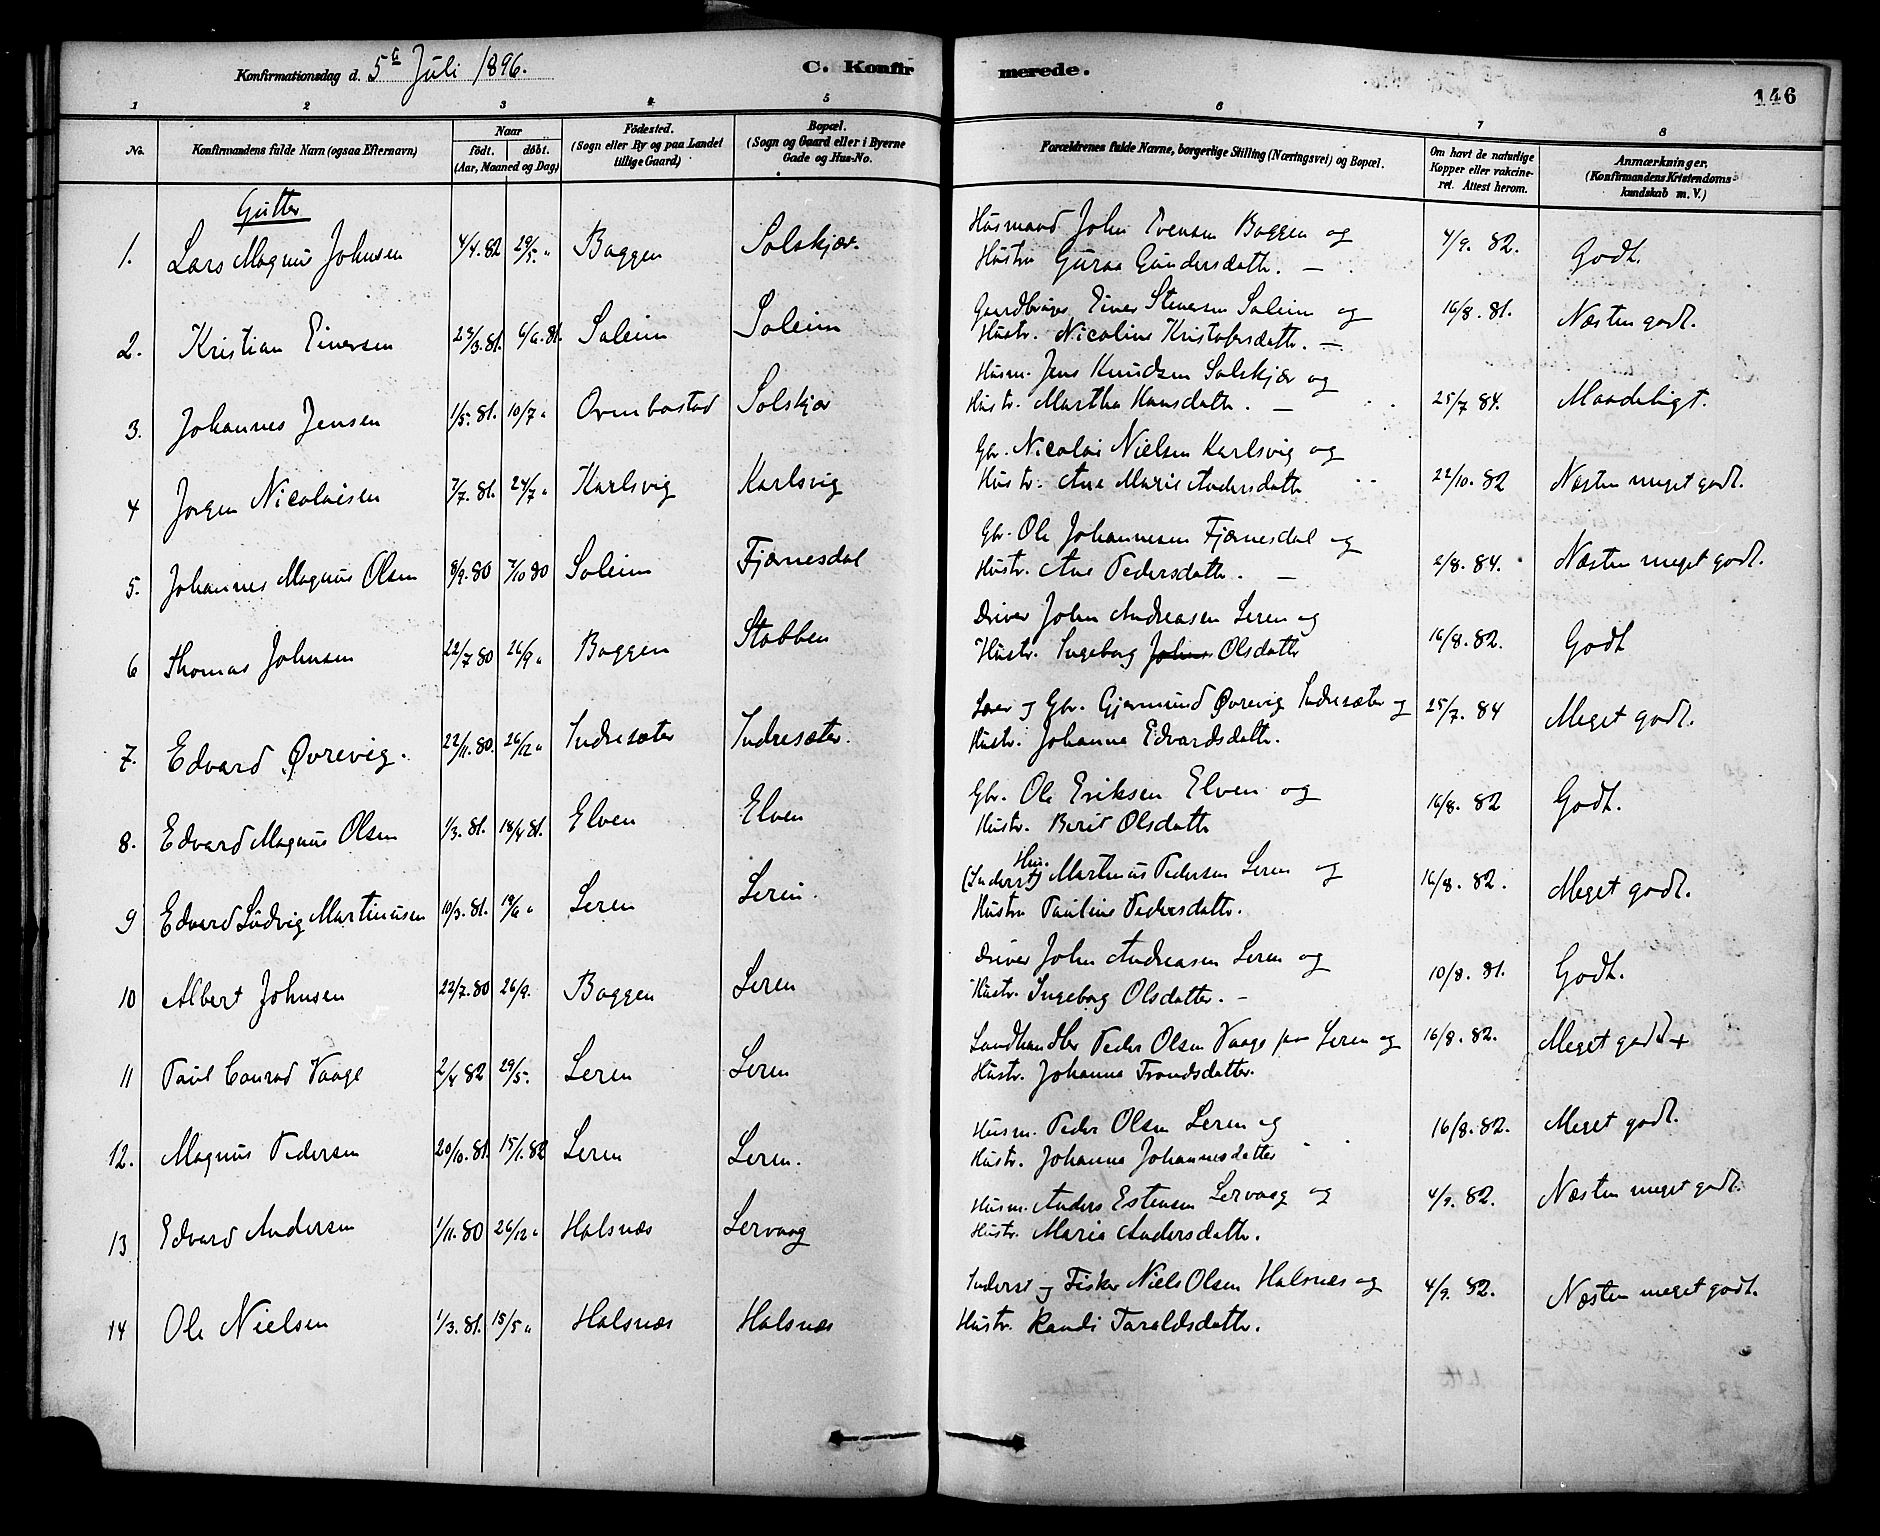 Konfirmationsdag d. 5te Juli 1896. C. Konfirmerede. 146
1 2 3 4 5 6 7 8
No. Konfirmandens fulde Navn (ogsaa Efternavn) Naar født. døbt. (Aar, Maaned og Dag) Fødested. (Sogn eller By og paa Landet tillige Gaard) Bopæl. (Sogn og Gaard eller i Byerne Gade og Hus-No. Forældrenes fulde Navne, borgerlige Stilling (Næringsvei) og Bopæl. Om havt de naturlige Kopper eller vakcineret. Attest herom. Anmærkninger. (Konfirmandens Kristendomskundskab m. V.)
Gutter
1. Lars Magnus Johnsen 4/4. 82 29/5. " Baggen Solskjær. Husmand John Evensen Baggen og Hustru Guraa Gundersdattr. — 4/9. 82. Godt.
2. Kristian Einersen 23/3. 81. 6/6. 81. Soleim Soleim Gaardbruger Einer Stenersen Soleim og Hustr. Nicoline Kristofersdattr. — 16/8. 81. Næsten godt.
3. Johannes Jensen 1/5. 81. 10/7 " Ormbostad Solskjær Husm. Jens Knudsen Solskjær og Hustr. Martha Hansdattr. — 25/7 84. Maadeligt.
4 Jørgen Nicolaisen 7/7. 81. 24/7 " Karlsvig Karlsvig Gbr. Nicolai Nielsen Karlsvig og Hustr. Ane Marie Andersdattr 22/10. 82 Næsten meget godt.
5. Johannes Magnus Olsen 8/9. 80 7/10 80 Soleim Fjærnesdal Gbr. Ole Johannesen Fjærnesdal og Hustr. Ane Pedersdattr. — 2/8. 84. Næsten meget godt.
6 Thomas Johnsen 22/7 80 26/9 " Baggen Stabben Driver John Andreasen Leren og Hustr. Ingeborg Johns Olsdattr 16/8. 82. Godt
7. Edvard Øvrevig. 22/11. 80. 26/12 " Indresæter Indresæter. Lærer og Gbr. Gjermund Øvrevig Indresæter og Hustr. Johanna Edvardsdattr. 25/7. 84 Meget godt.
8. Edvard Magnus Olsen 1/3. 81. 18/4 81. Elven Elven Gbr. Ole Eriksen Elven og Hustr. Berit Olsdattr 16/8. 82 Godt.
9 Edvard Ludvig Martinusen 10/3. 81. 19/6 " Leren Leren. (Inderst) Hus. Martinus Pedersen Leren og Hustru Pauline Pedersdattr. 16/8. 82. Meget godt.
10 Albert Johnsen 22/7. 80 26/9. Baggen Leren Driver John Andreasen Leren og Hustr. Ingeborg Olsdatter. — 10/8. 81. Godt.
11 Paul Conrad Vaage 2/4 82 29/5. Leren Leren Landhandler Peder Olsen Vaage paa Leren og Hustr. Johanna Trondsdatter. 16/8. 82. Meget godt +
12. Magnus Pedersen 20/10. 81. 15/1. 82 Leren Leren. Husm. Peder Olsen Leren og Hustr. Johanna Johannesdatter 16/8. 82. Meget godt.
13 Edvard Andersen 1/11. 80 26/12 " Halsnæs Lervaag Husm. Anders Estensen Lervaag og Hustr. Maria Andersdattr. 4/9. 82. Næsten meget godt.
14 Ole Nielsen 1/3. 81. 15/5 " Halsnæs Halsnæs Inderst og Fisker Niels Olsen Halsnæs og Hustr. Randi Taraldsdattr. 4/9. 82. Næsten meget godt.